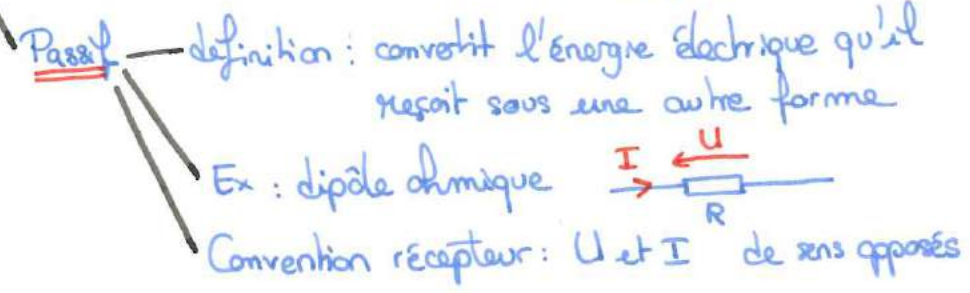 Passif définition : convertit l'énergie électrique qu'il
reçoit sous une autre forme
Ex : dipôle ohmique I U
R
Convention récepteur : U et I de sens opposés